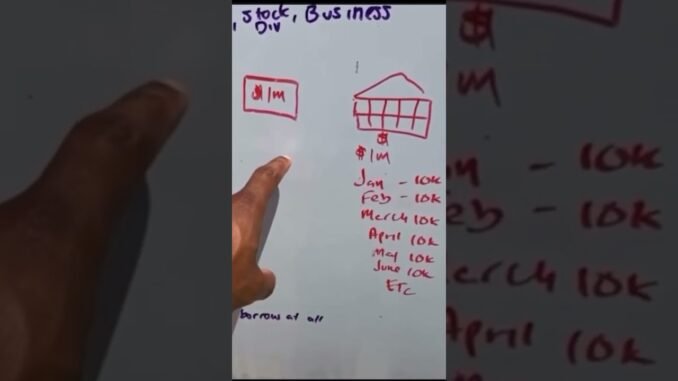 , Stock, Business
, Div
$1M
$
$1M
Jan - 10k
Feb - 10k
March 10k
April 10k
May 10k
June 10k
ETC
borrow at all